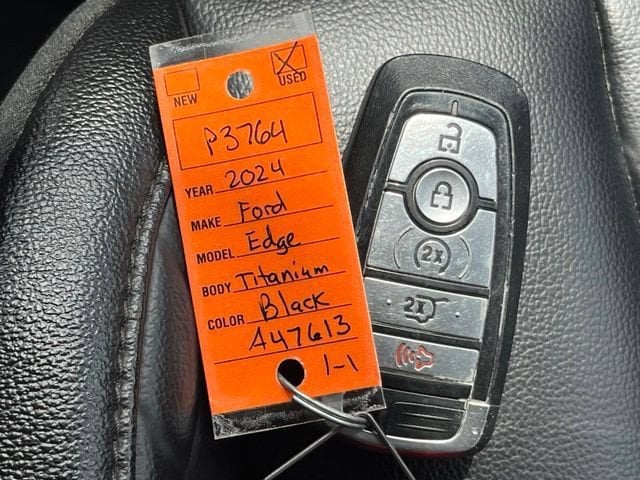 NEW
USED
P3764
YEAR 2024
MAKE Ford
MODEL Edge
BODY Titanium
COLOR Black
A47613
1-1
2x
2x